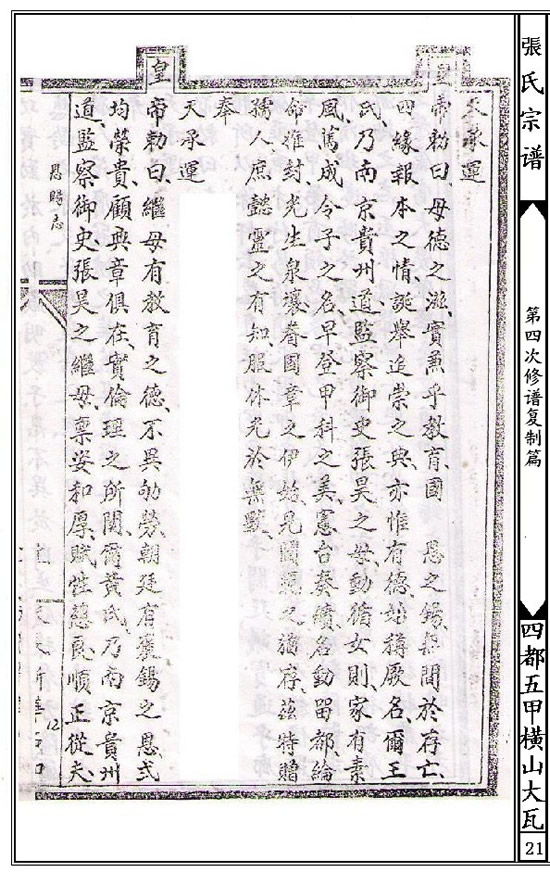 張氏宗谱
第四次修谱复制篇
四都五甲横山大瓦
21
天承運
皇
帝勅曰母德之滋實兼乎教育國 恩之錫無間於存亡
四緣報本之情誕舉追崇之典亦惟有德始稱厥名爾王
氏乃南京貴州道監察御史張昊之母動循女則家有素
風篤成令子之名早登甲科之美憲台奏績名動留都綸
命推封光生泉壤眷國章之伊始見閫範之猶存茲特贈
孺人庶懿靈之有知服休光於無斁
奉
天承運
皇
帝勅曰繼母有教育之德不異劬勞朝廷有褒錫之恩式
均榮貴顧典章俱在實倫理之所關爾黄氏乃南京貴州
道監察御史張昊之繼母稟姿和厚賦性慈良順正從夫
恩賜志
12